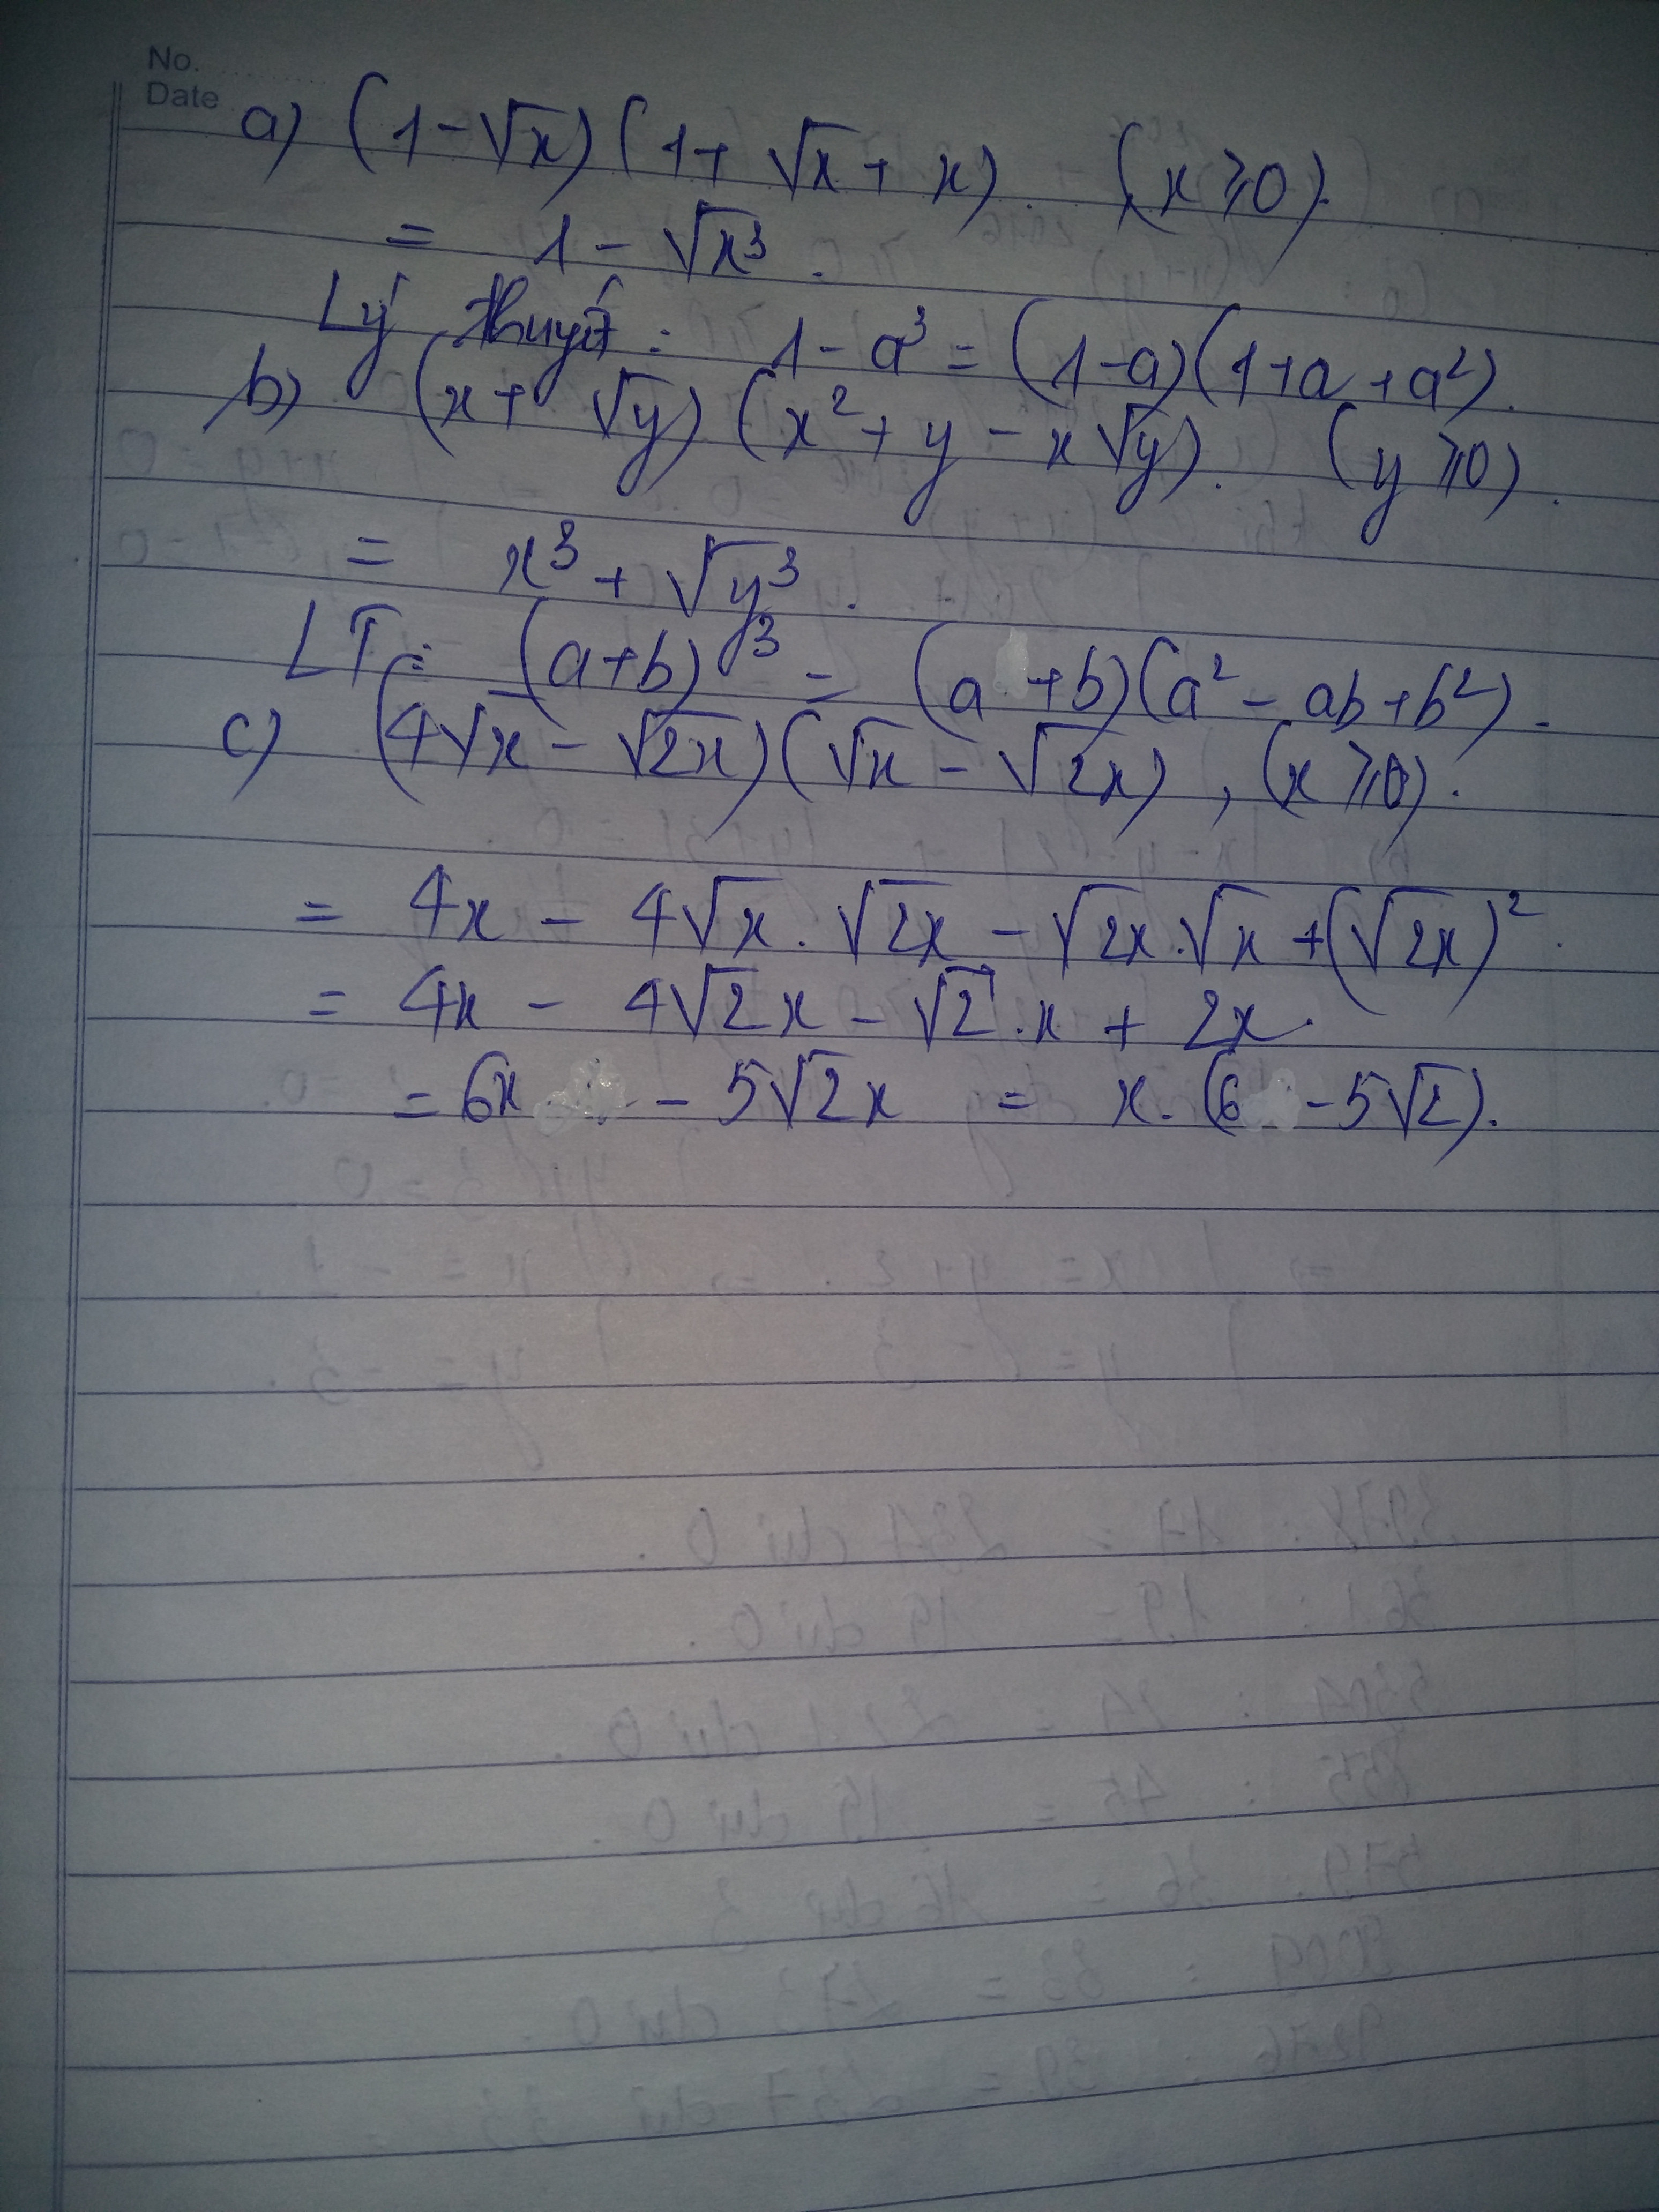 No.
Date
a) (1 - √x)(1 + √x + x). (x ⩾ 0).
= 1 - √x³.
Lý thuyết: 1 - a³ = (1-a)(1+a+a²).
b) (x + √y)(x² + y - x√y). (y ⩾ 0).
= x³ + √y³.
LT: (a+b)³ = (a+b)(a² - ab + b²).
c) (4√x - √2x)(√x - √2x), (x ⩾ 0).
= 4x - 4√x.√2x - √2x.√x + (√2x)².
= 4x - 4√2x - √2.x + 2x.
= 6x - 5√2x = x.(6 - 5√2).